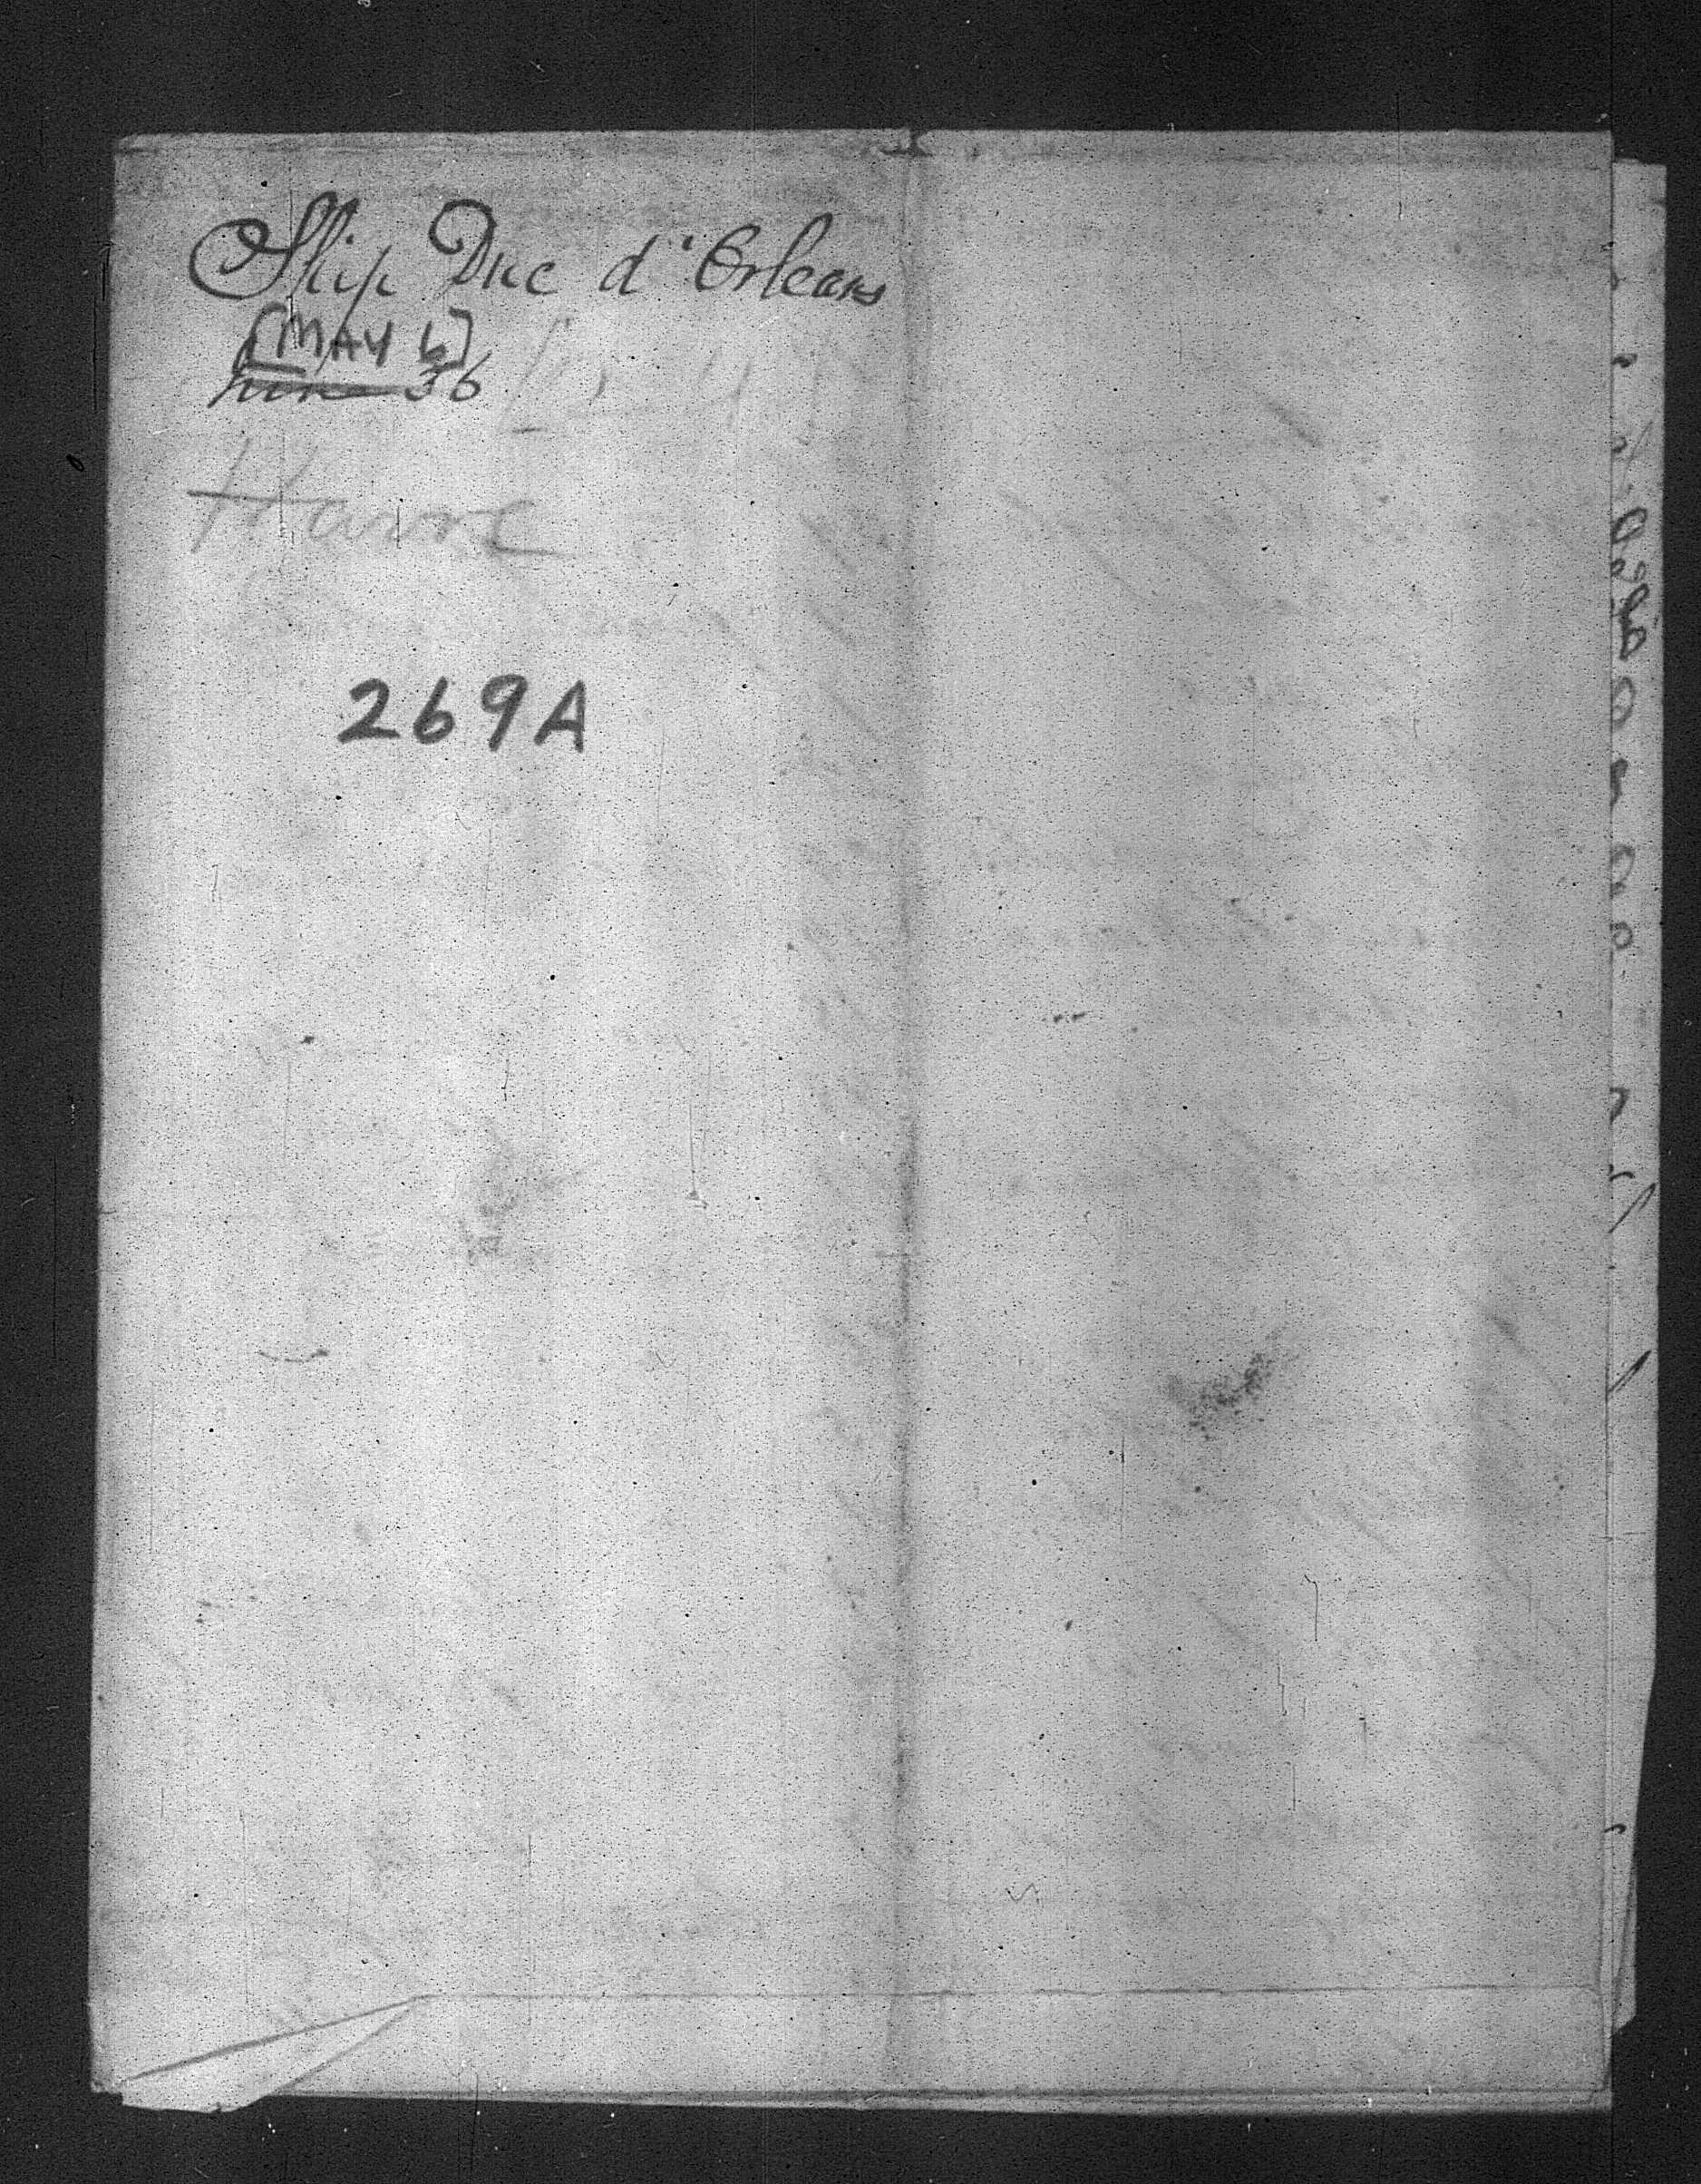 Ship Duc d'Orleans
[MAY 6]
June 36
Havre
269A